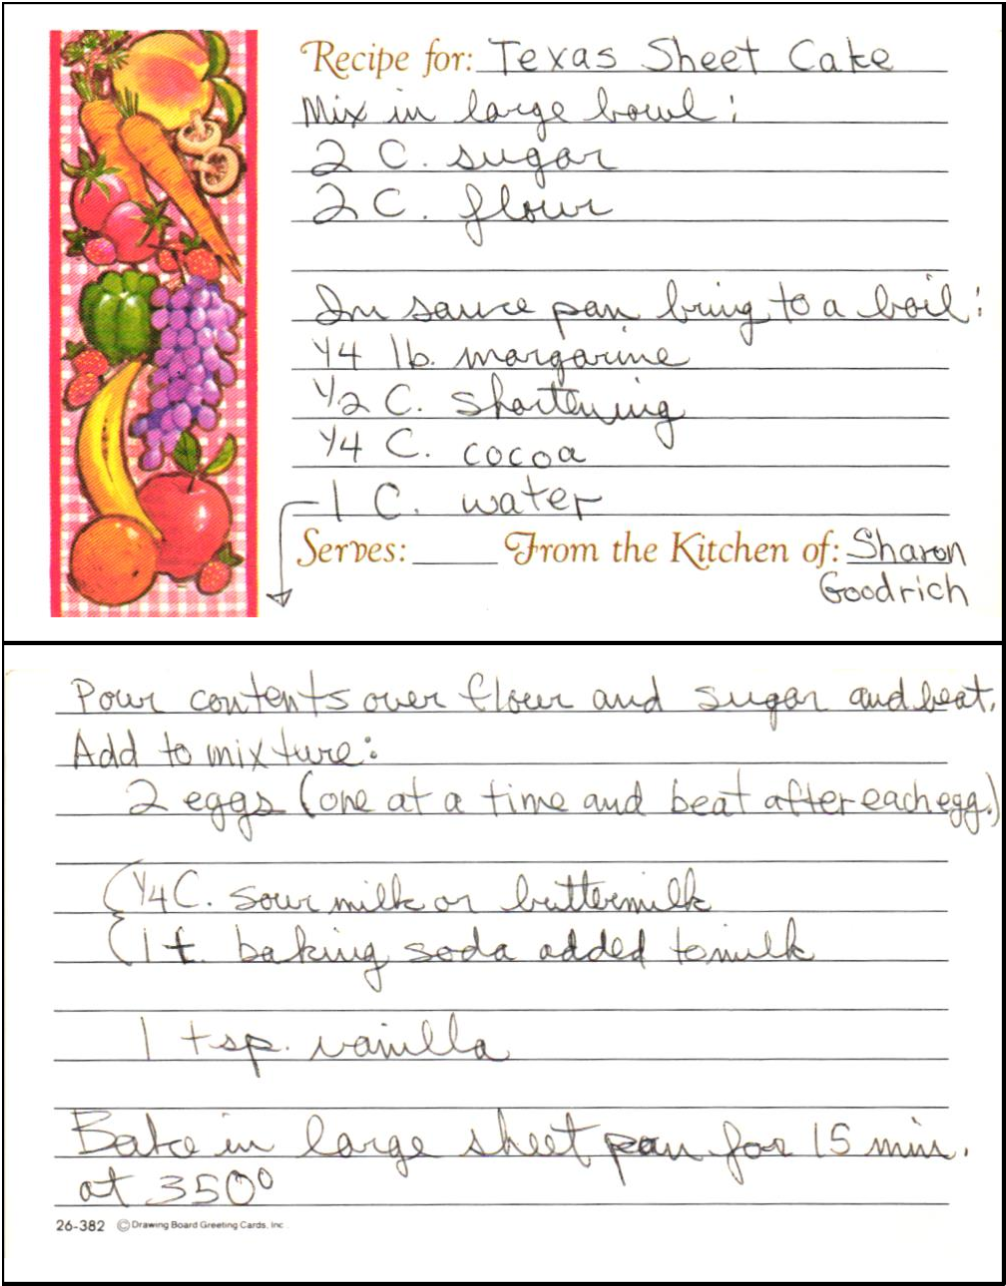 Recipe for: Texas Sheet Cake
Mix in large bowl:
2 C. sugar
2 C. flour
In sauce pan bring to a boil:
1/4 lb. margarine
1/2 C. shortening
1/4 C. cocoa
1 C. water
Serves: From the Kitchen of: Sharon
Goodrich
Pour contents over flour and sugar and beat.
Add to mixture:
2 eggs (one at a time and beat after each egg.)
1/4 C. sour milk or buttermilk
1 t. baking soda added to milk
1 tsp. vanilla
Bake in large sheet pan for 15 min.
at 350°
26-382 © Drawing Board Greeting Cards, Inc.